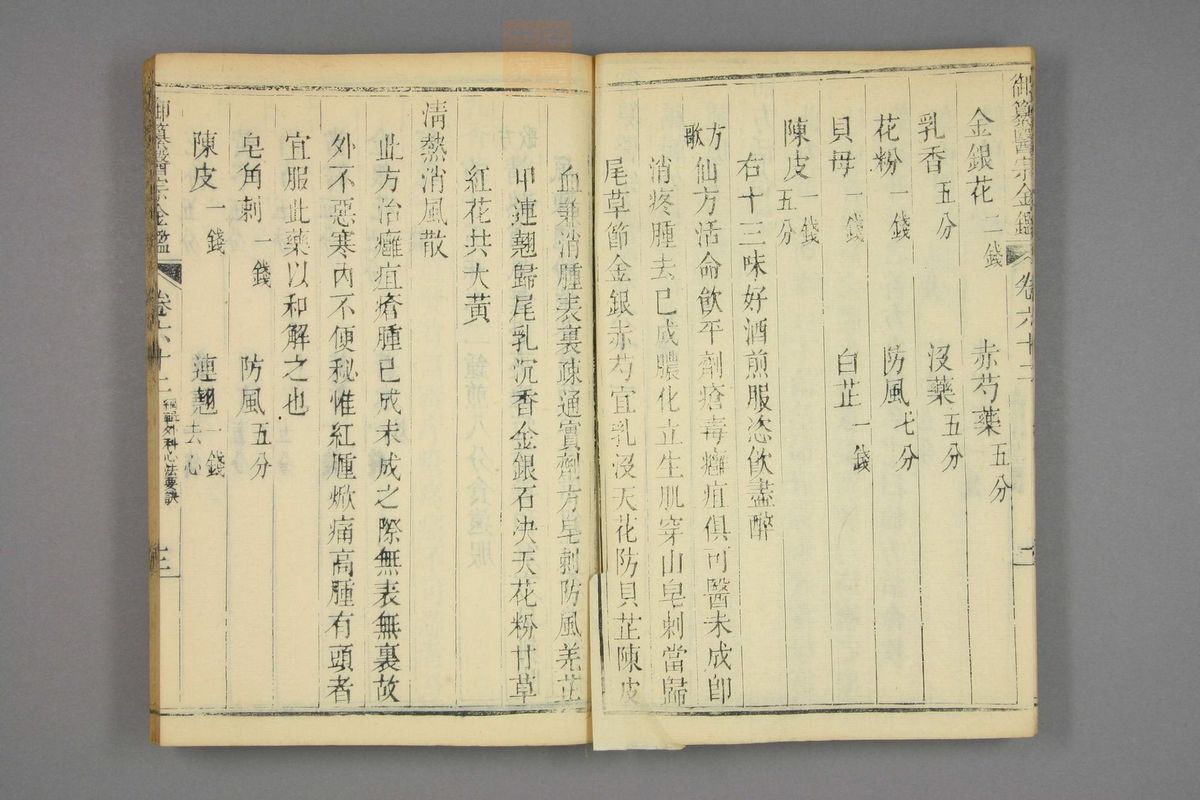 御纂醫宗金鑑　卷六十二
金銀花二錢　赤芍藥五分
乳香五分　沒藥五分
花粉一錢　防風七分
貝母一錢　白芷一錢
陳皮一錢五分
右十三味好酒煎服恣飲盡醉
方歌　仙方活命飲平劑瘡毒癰疽俱可醫未成卽
消疼腫去已成膿化立生肌穿山皂刺當歸
尾草節金銀赤芍宜乳沒天花防貝芷陳皮
血兼消腫表裏疎通實劑方皂刺防風羗芷
甲連翹歸尾乳沉香金銀石決天花粉甘草
紅花共大黃
淸熱消風散
此方治癰疽瘡腫已成未成之際無表無裏故
外不惡寒內不便秘惟紅腫焮痛高腫有頭者
宜服此藥以和解之也
皂角刺一錢　防風五分
陳皮一錢　連翹一錢去心
御纂醫宗金鑑　卷六十二　編輯外科心法要訣　三